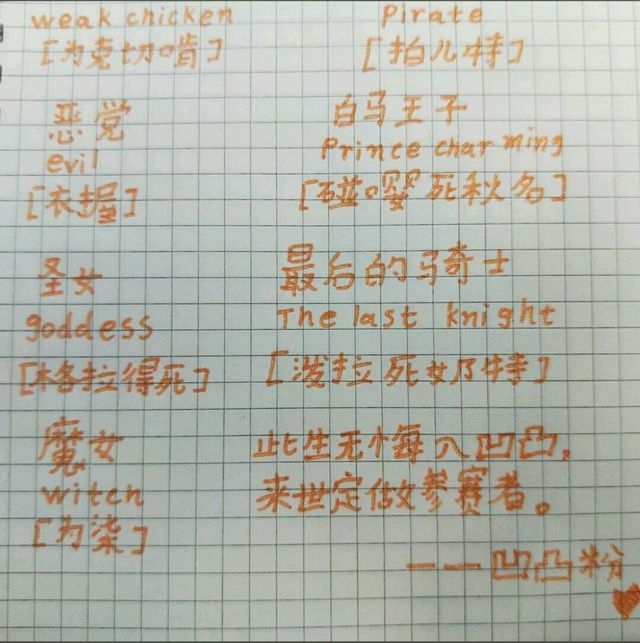 weak chicken
[为克切啃]
恶党
evil
[衣握]
圣女
goddess
[格拉得死]
魔女
witch
[为染]
Pirate
[拍儿特]
白马王子
Prince charming
[碰嘤死秋名]
最后的骑士
The last knight
[泼拉死奶特]
此生无悔入凹凸,
来世定做参赛者。
——凹凸粉